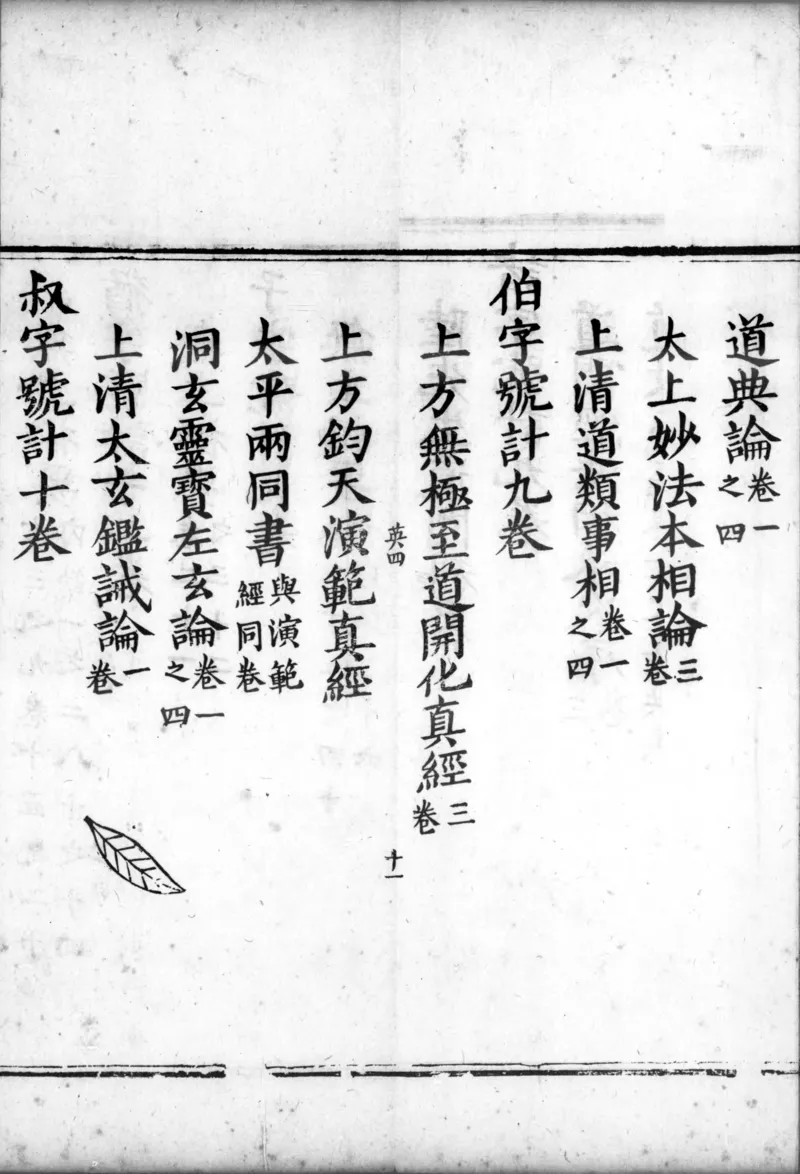 道典論卷一之四
太上妙法本相論三卷
上清道類事相卷一之四
伯字號計九卷
上方無極至道開化真經三卷
英四
十一
上方鈞天演範真經
太平兩同書與演範經同卷
洞玄靈寶左玄論卷一之四
上清太玄鑑誡論一卷
叔字號計十卷